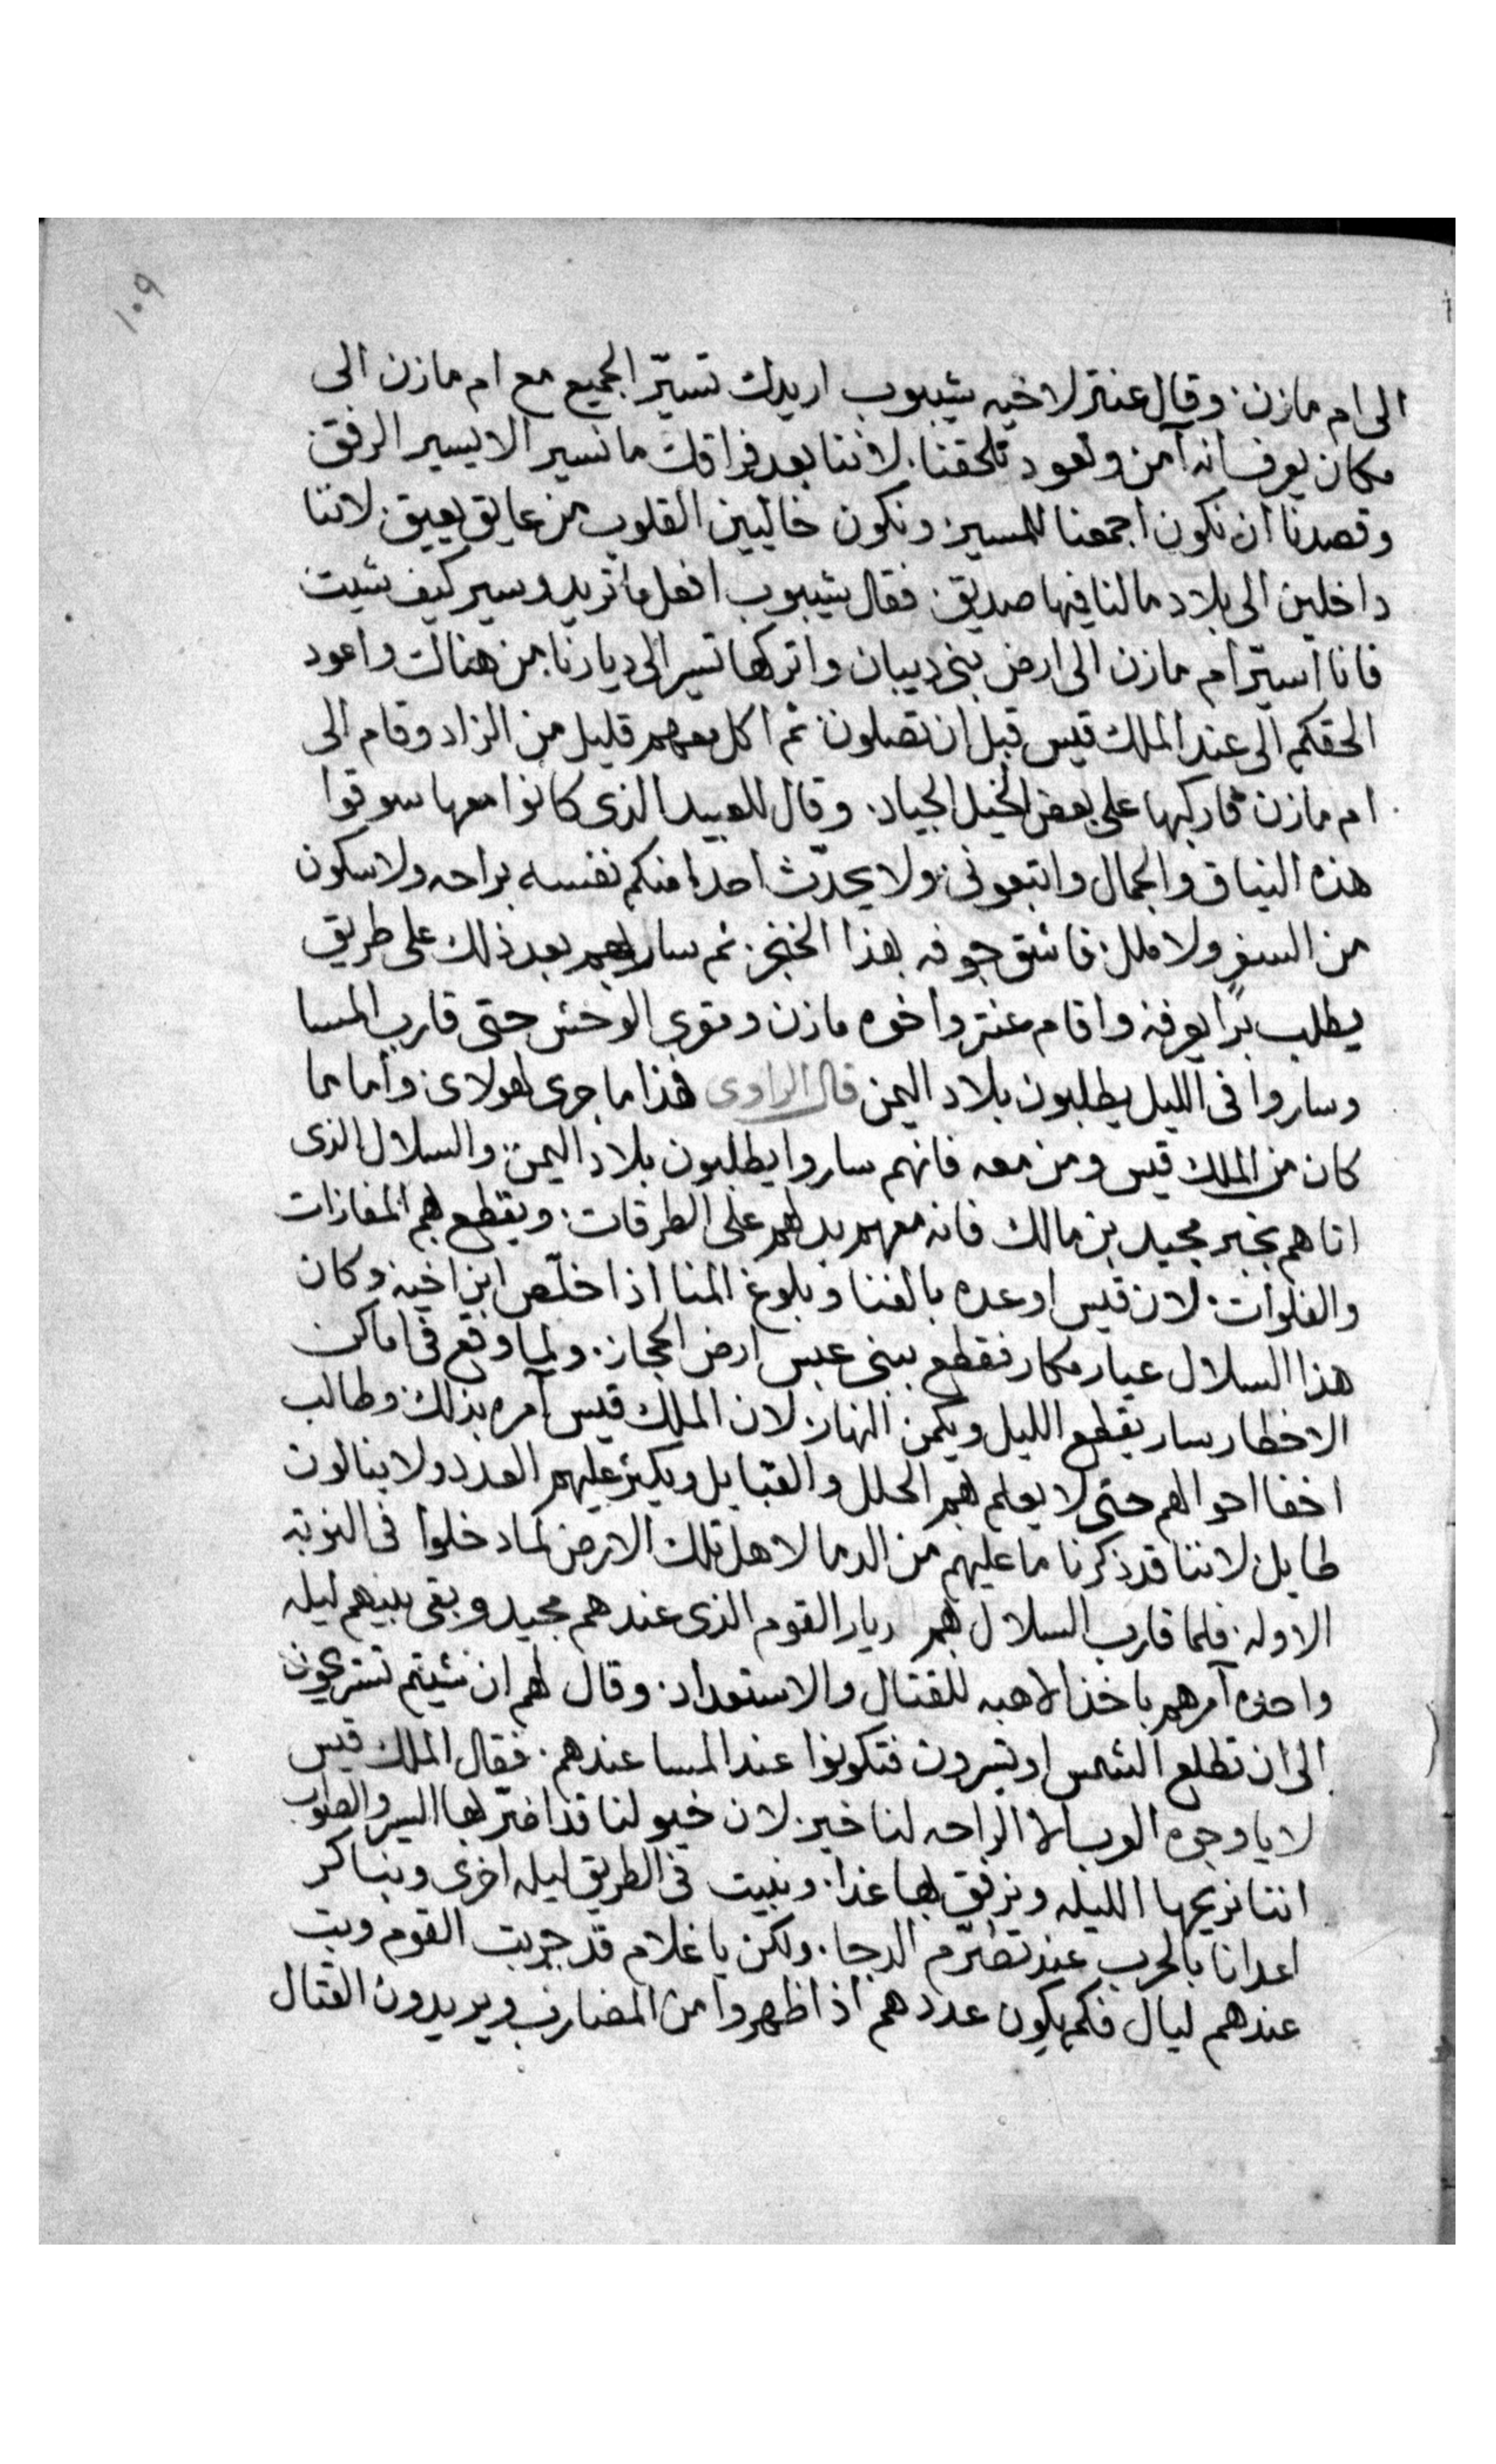 ١٠٩
الى ام مازن. وقال عنتر لاخيه شيبوب اريدك تسيّر الجميع مع ام مازن الى
مكان يعرف انه آمن وتعود تلحقنا. لاننا بعد فراقك ما نسير الا يسير الرفق
وقصدنا ان نكون اجمعنا للمسير ونكون خاليين القلوب من عايق يعيق. لاننا
داخلين الى بلاد ما لنا فيها صديق. فقال شيبوب افعل ما تريد وسير كيف شيت
فانا اسيّر ام مازن الى ارض بنى ديبان واتركها تسير الى ديارنا من هناك واعود
الحقكم الى عند الملك قيس قبل ان تصلون. ثم اكل معهم قليل من الزاد وقام الى
ام مازن فاركبها على بعض الخيل الجياد. وقال للعبيد الذى كانوا معها سوقوا
هذه النياق والجمال واتبعونى. ولا يحدّث احدا منكم نفسه براحه ولا سكون
من السفر ولا ملل. فاشق جوفه بهذا الخنجر. ثم سار بهم بعد ذلك على طريق
يطلب برًا يعرفه واقام عنتر واخوه مازن ومقرى الوحش حتى قارب المسا
وساروا فى الليل يطلبون بلاد اليمن قال الراوى فهذا ما جرى لهولاى. واما ما
كان من الملك قيس ومن معه فانهم ساروا يطلبون بلاد اليمن. والسلال الذى
اتاهم بخبر مجيد بن مالك فانه معهم يدلهم على الطرقات. ويقطع بهم المفازات
والفلوات. لان قيس اوعده بالغنا وبلوغ المنا اذا خلّص ابن اخيه. وكان
هذا السلال عيار مكار فقطع ببنى عبس ارض الحجاز. ولما وقع فى اماكن
الاخطار سار يقطع الليل ويكمن النهار. لان الملك قيس آمره بذلك. وطالب
اخفا احوالهم حتى لا يعلم بهم الحلل والقبايل ويكثر عليهم العدد ولا ينالون
طايل. لاننا قد ذكرنا ما عليهم من الدما لاهل تلك الارض لما دخلوا فى النوبه
الاوله. فلما قارب السلال بهم ديار القوم الذى عندهم مجيد وبقى بينهم ليله
واحده آمرهم باخذ الاهبه للقتال والاستعداد. وقال لهم ان شيتم تستريحون
الى ان تطلع الشمس او تسرون فتكونوا عند المسا عندهم. فقال الملك قيس
لا يا وجوه العرب الا الراحه لنا خير. لان خيولنا قد اضرّ بها السير والصواب
اننا نريحها الليله ونرفق بها غدا. ونبيت فى الطريق ليله اخرى ونباكر
اعدانا بالحرب عند تصرّم الدجا. ولكن يا غلام قد جربت القوم وبت
عندهم ليال فكم يكون عددهم اذا ظهروا من المضارب ويريدون القتال